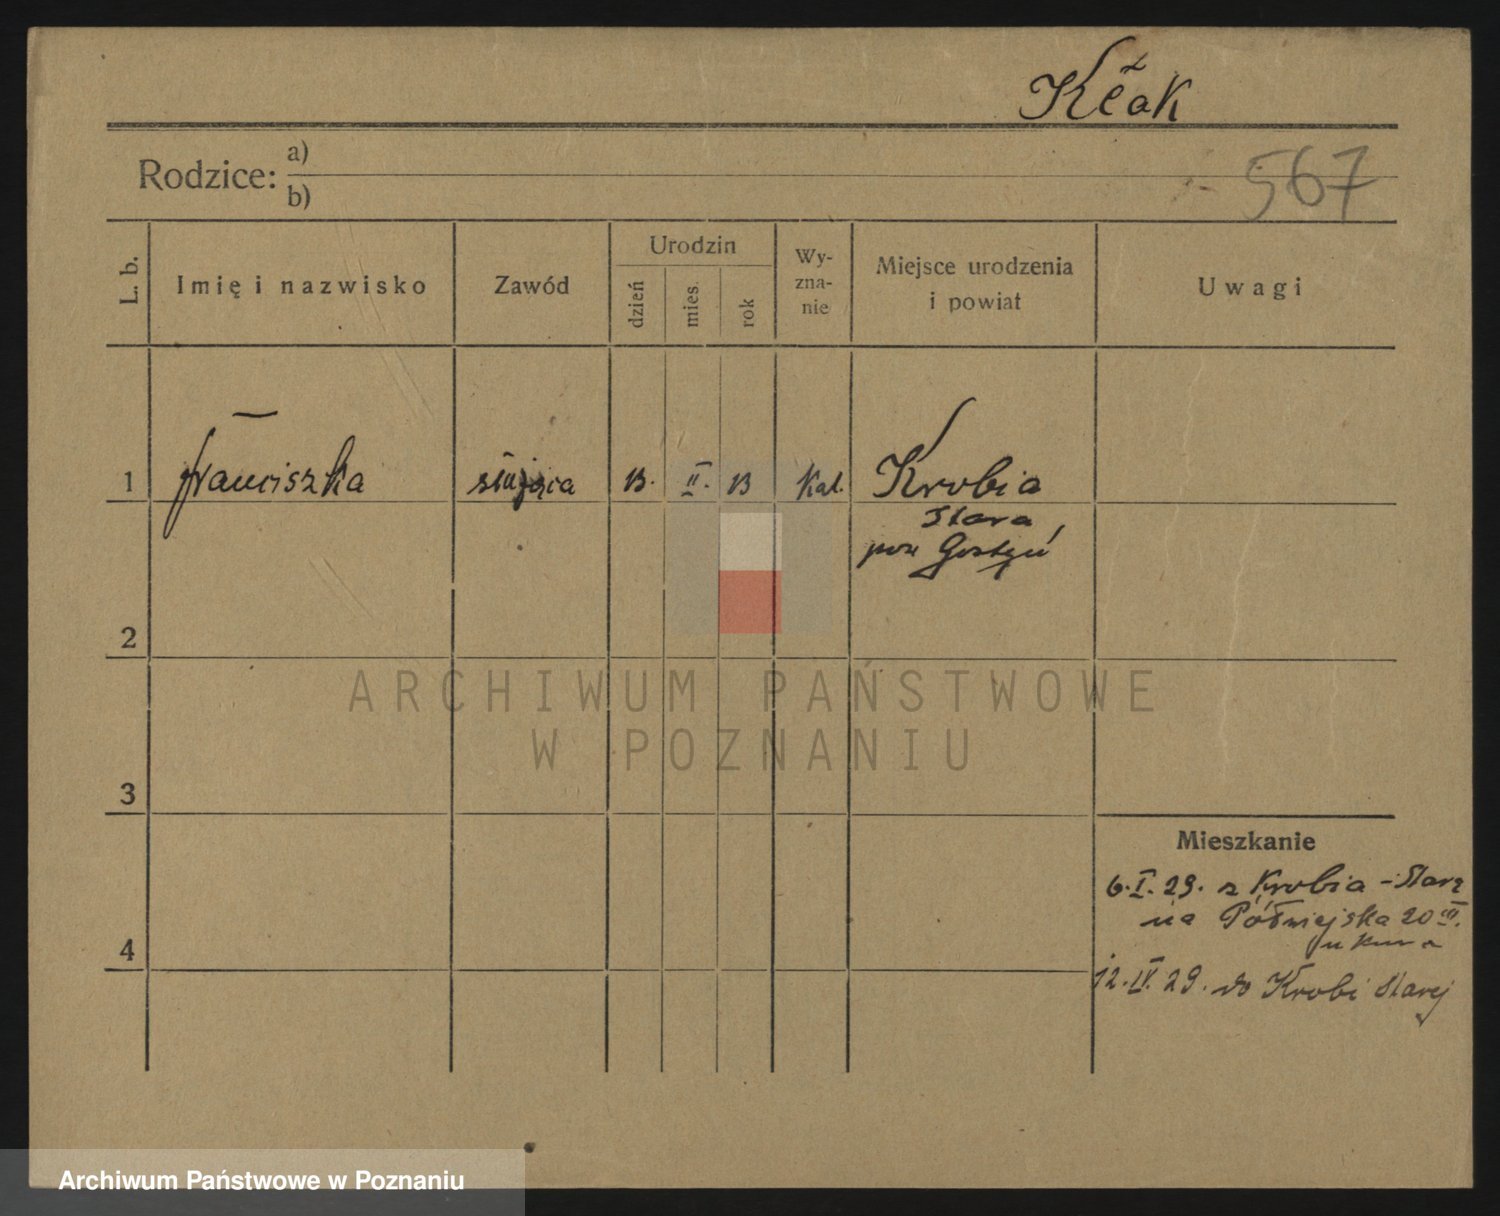 Kłak
Rodzice: a)
b)
567
L. b.
Imię i nazwisko
Zawód
Urodzin
dzień
mies.
rok
Wy-
zna-
nie
Miejsce urodzenia
i powiat
Uwagi
1 Franciszka służąca 13. II. 13 Kat. Krobia
Stara
pow Gostyń
2
3
4
Mieszkanie
6.I.29. z Krobia - Stara
na Półwiejska 20 III.
u
12.IV.29. do Krobi Starej
ARCHIWUM PAŃSTWOWE
W POZNANIU
Archiwum Państwowe w Poznaniu